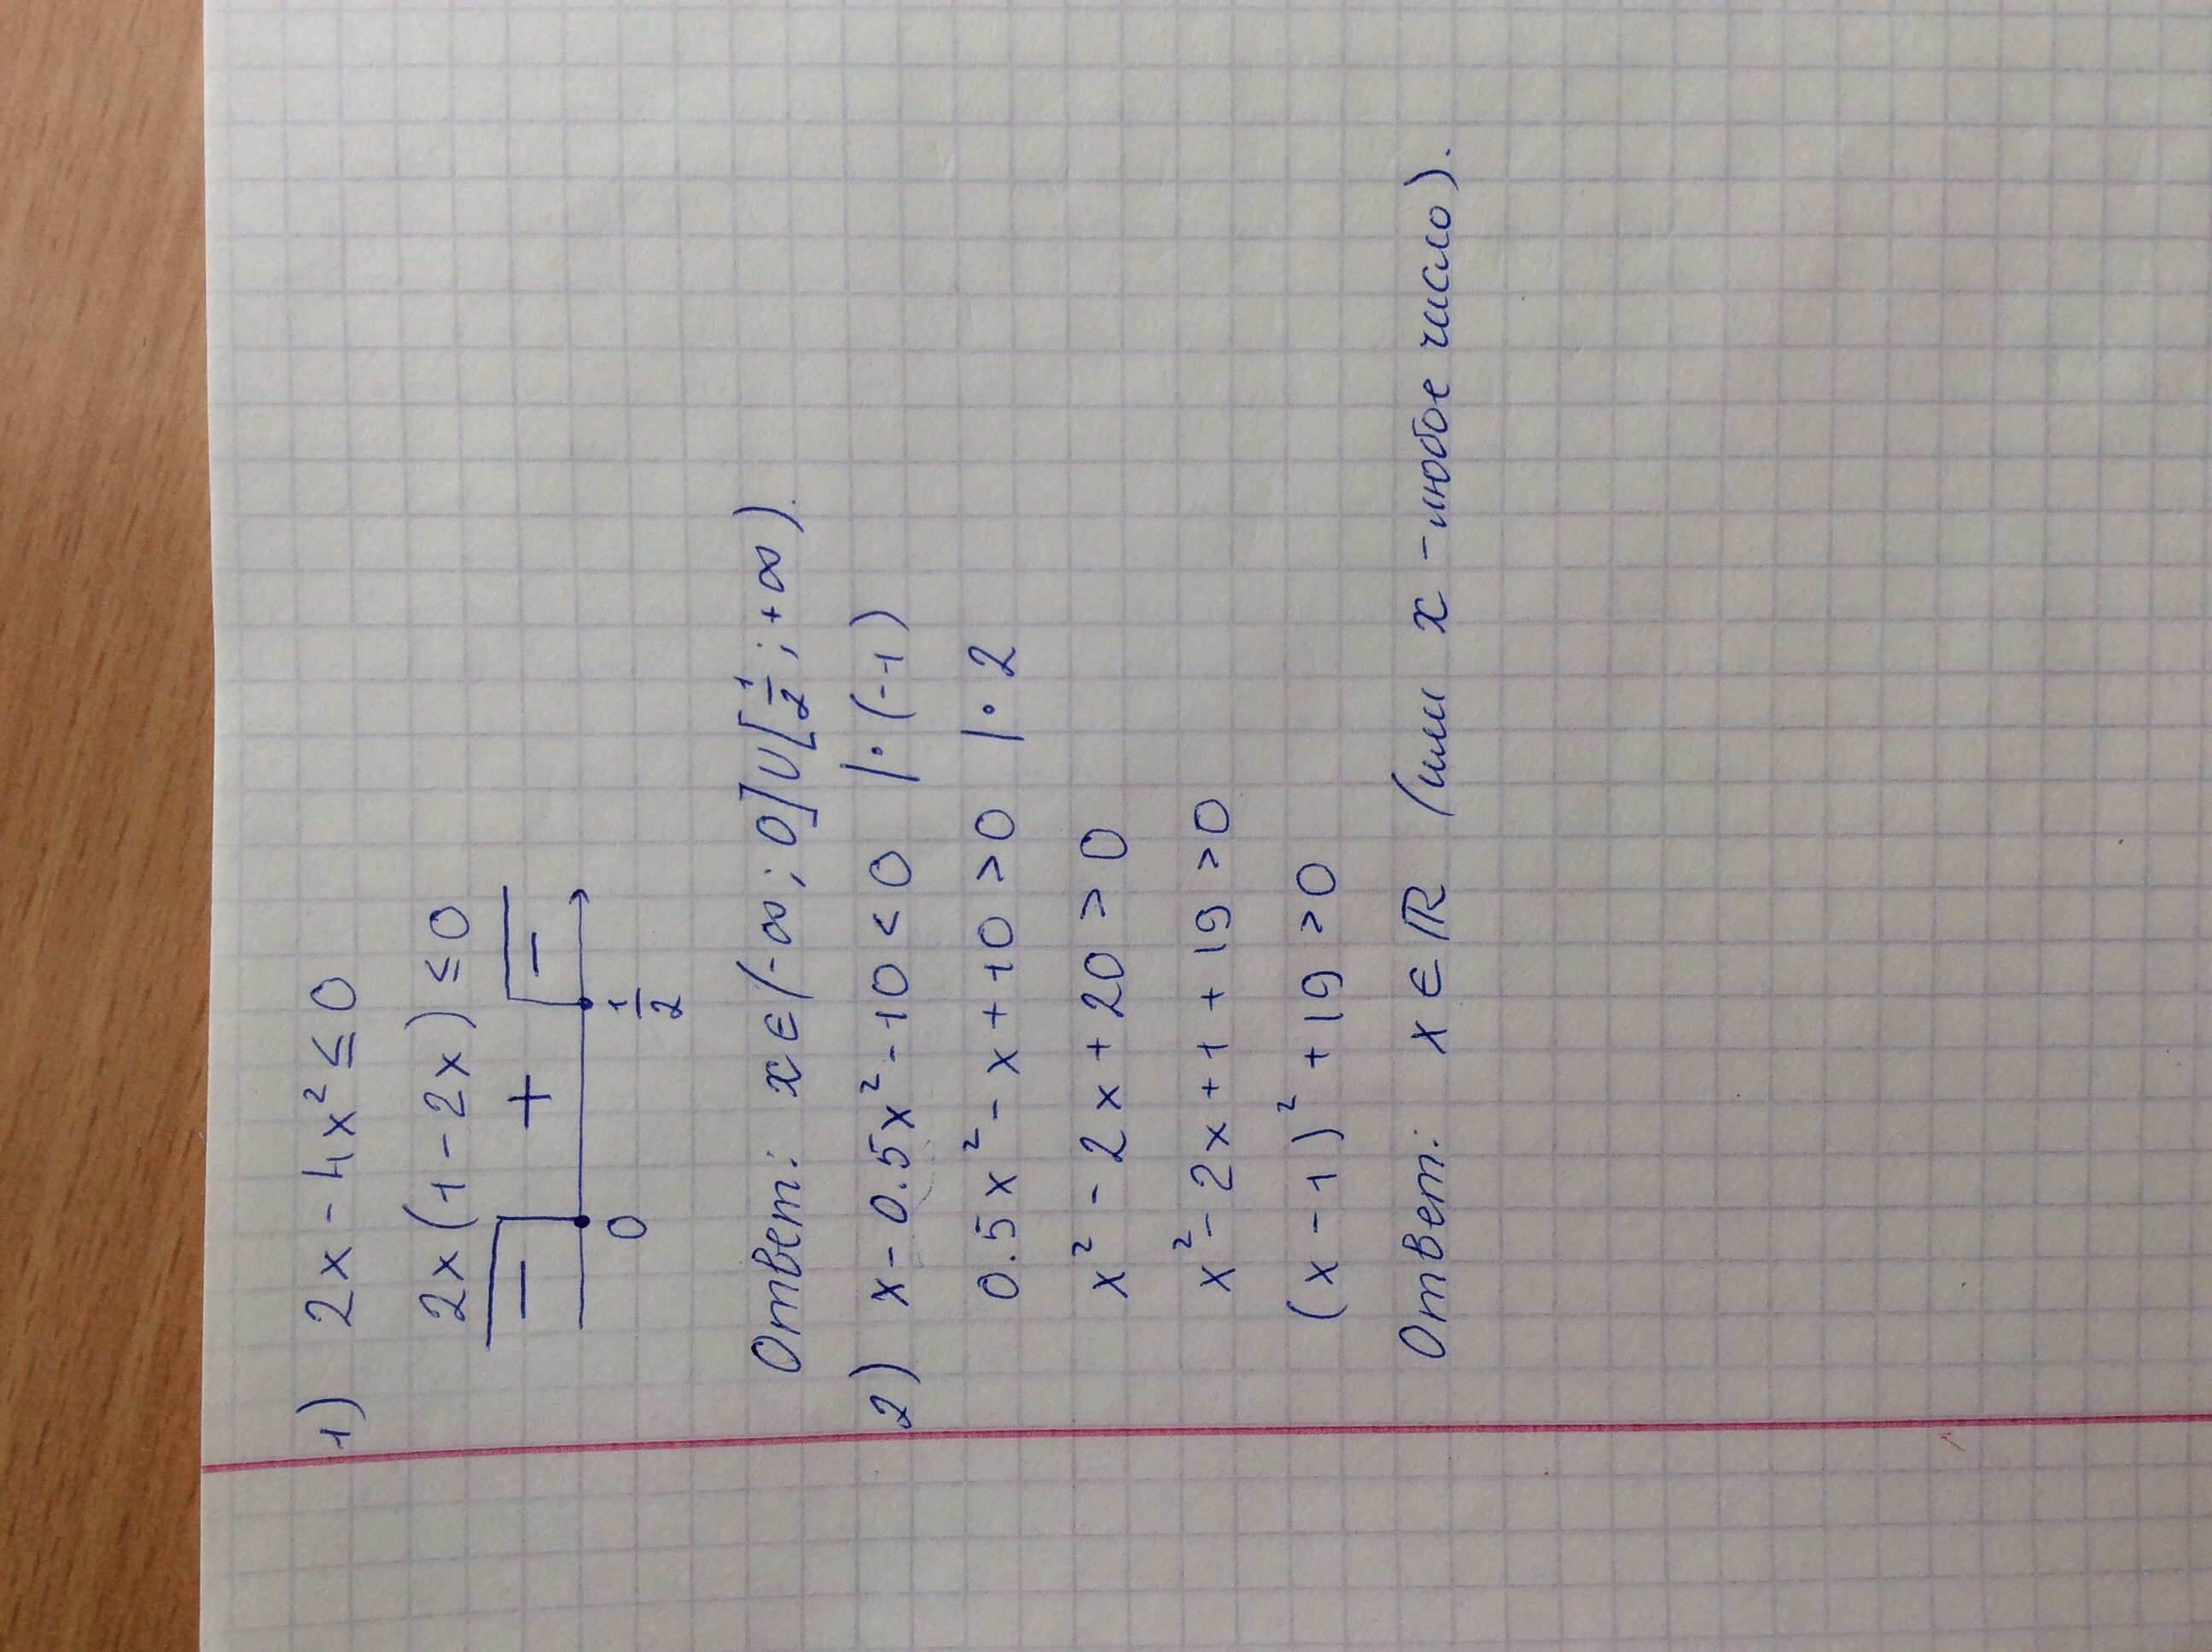 1) 2x - 4x² ≤ 0
2x(1-2x) ≤ 0
- + -
0 1/2
Ответ: x ∈ (-∞; 0] ∪ [1/2; +∞).
2) x - 0.5x² - 10 < 0 |·(-1)
0.5x² - x + 10 > 0 |·2
x² - 2x + 20 > 0
x² - 2x + 1 + 19 > 0
(x - 1)² + 19 > 0
Ответ: x ∈ ℝ (или x - любое число).